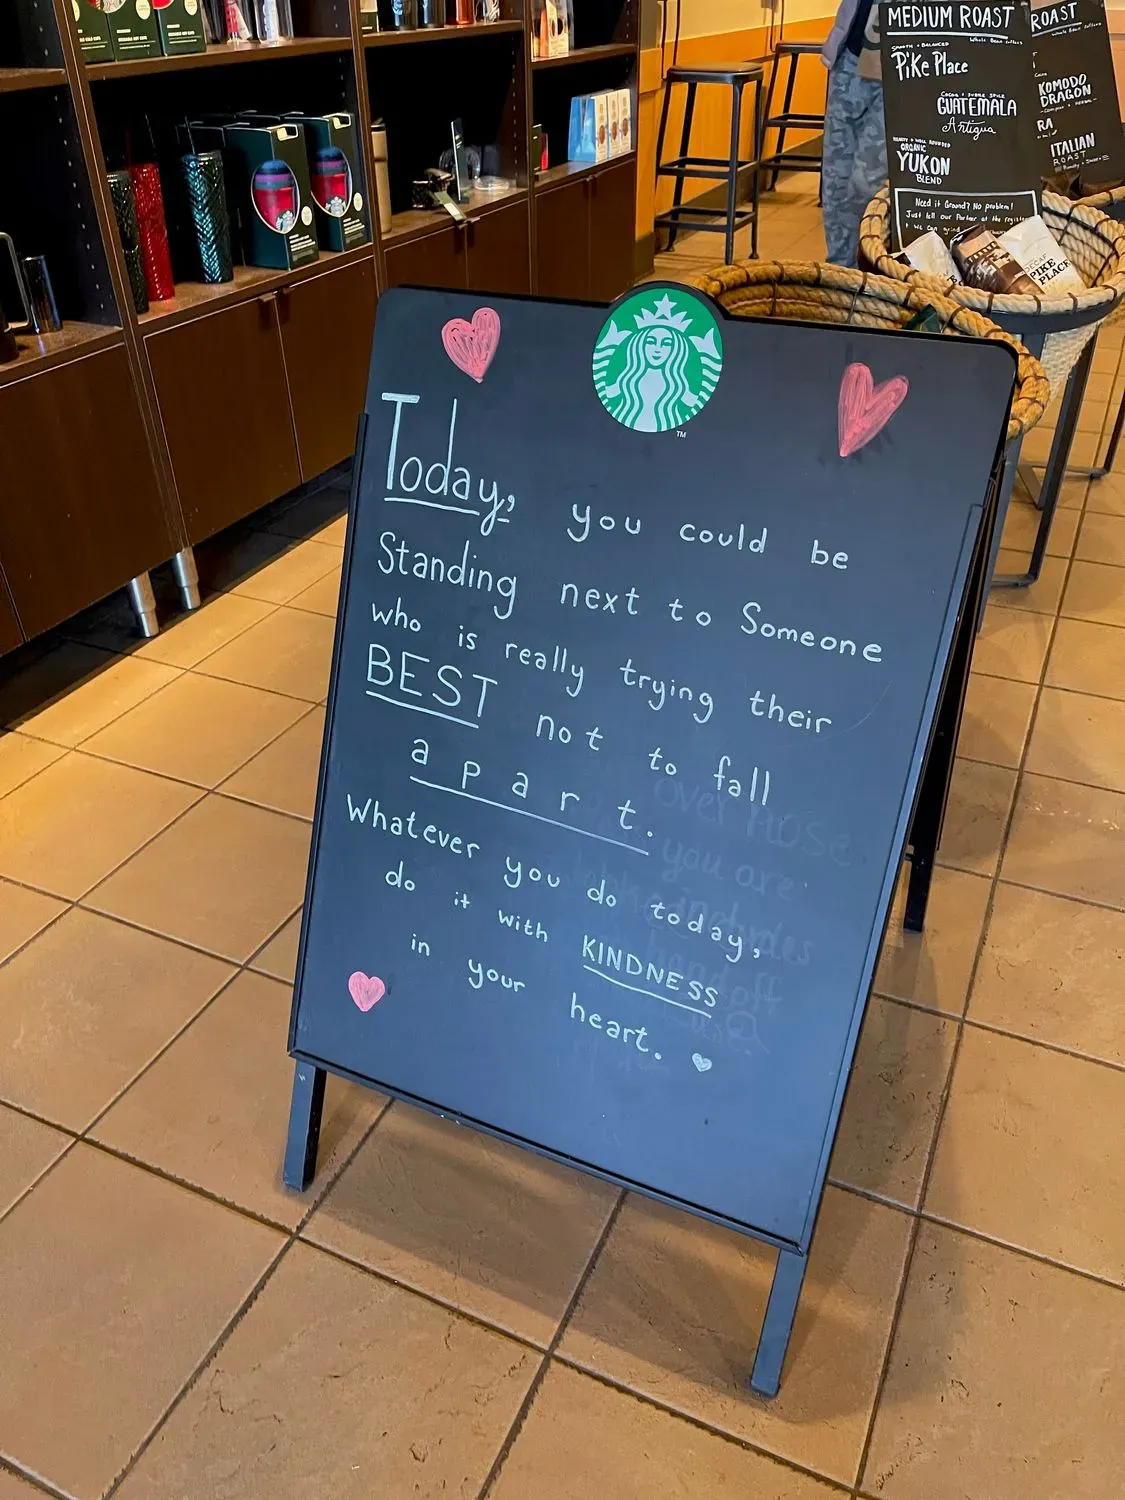 Today, you could be
Standing next to Someone
who is really trying their
BEST not to fall
apart.
Whatever you do today,
do it with KINDNESS
in your heart.
TM
over
you are
off
MEDIUM ROAST
Whole Bean Coffees
SMOOTH + BALANCED
PiKe Place
GUATEMALA
Antigua
ORGANIC
YUKON
BLEND
Need it Ground? No problem!
Just tell our Partner at the register
+ we can grind
ROAST
KOMODO
DRAGON
RA
ITALIAN
ROAST
DECAF
PIKE
PLACE